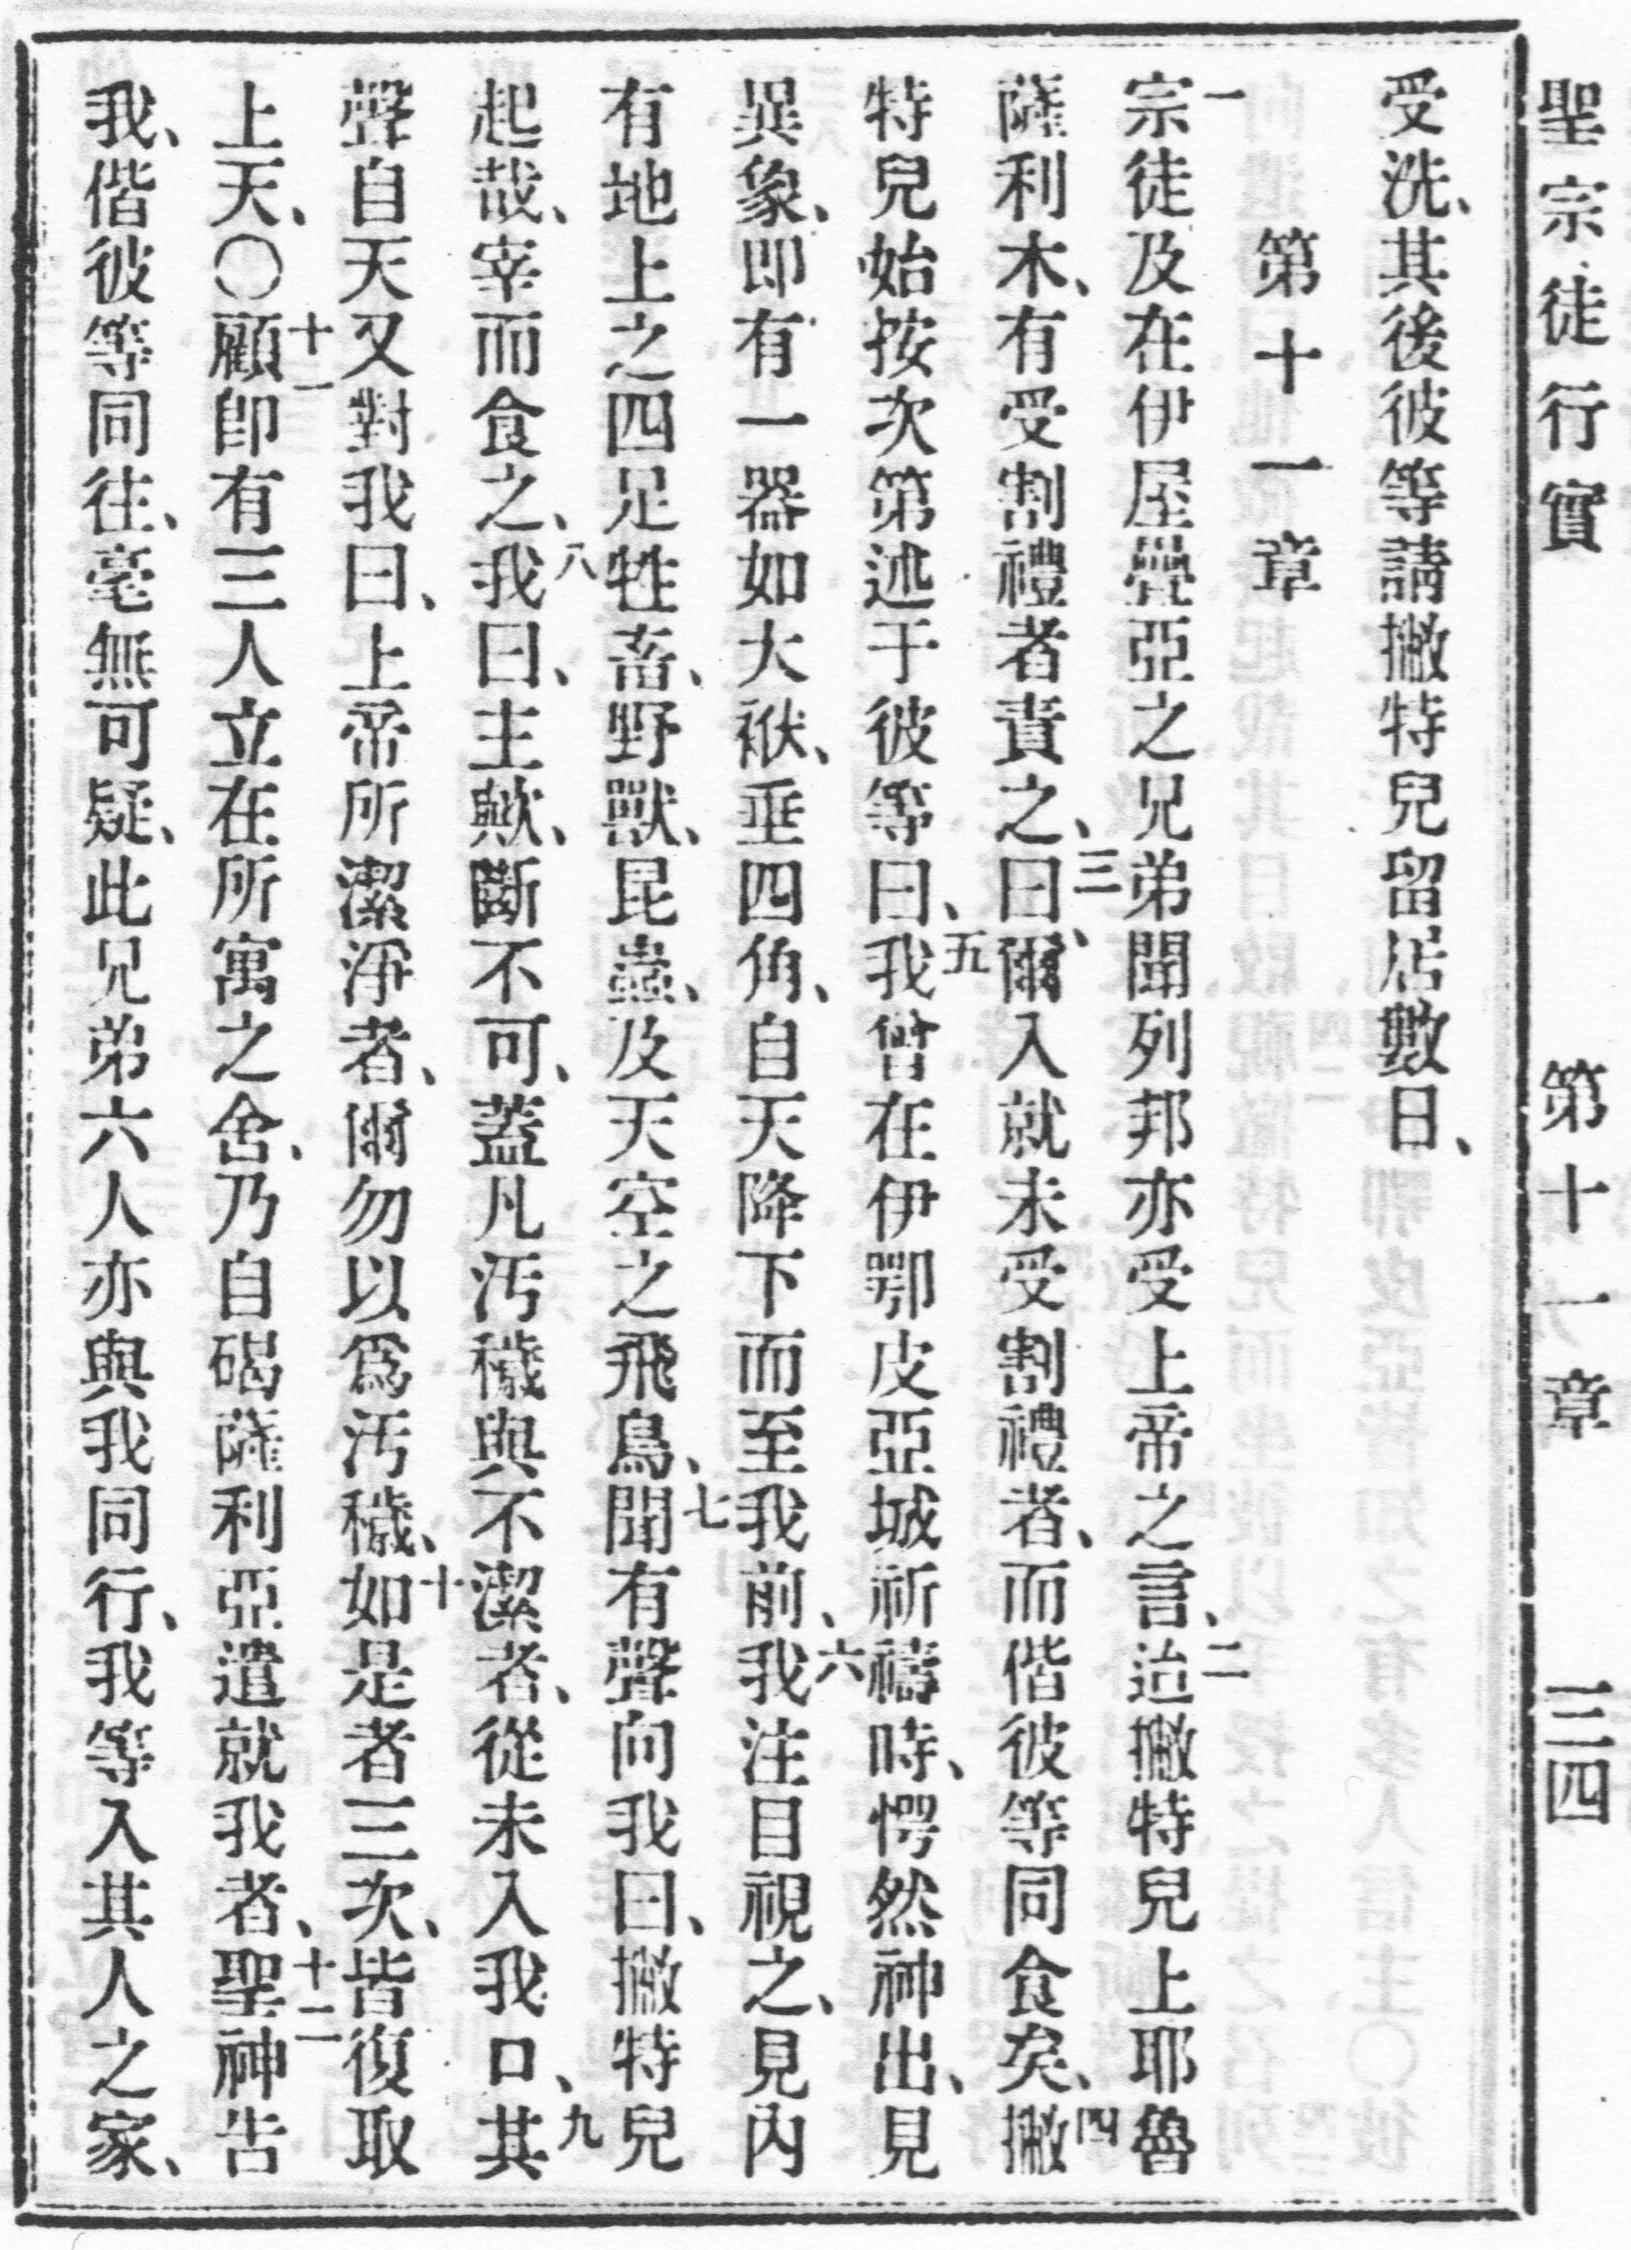 聖宗徒行實 第十一章 三四
受洗、其後彼等請撇特兒留居數日、
第十一章
一宗徒及在伊屋疊亞之兄弟聞列邦亦受上帝之言、二迨撇特兒上耶魯
薩利木、有受割禮者責之、三曰、爾入就未受割禮者、而偕彼等同食矣、四撇
特兒始按次第述于彼等曰、五我曾在伊鄂皮亞城祈禱時、愕然神出、見
異象、即有一器如大袱、垂四角、自天降下而至我前、六我注目視之、見內
有地上之四足牲畜、野獸、昆蟲、及天空之飛鳥、七聞有聲向我曰、撇特兒
起哉、宰而食之、八我曰、主歟、斷不可、蓋凡汚穢與不潔者、從未入我口、九其
聲自天又對我曰、上帝所潔淨者、爾勿以爲汚穢、十如是者三次、皆復取
上天、〇十一顧卽有三人立在所寓之舍、乃自碣薩利亞遣就我者、十二聖神告
我、偕彼等同往、毫無可疑、此兄弟六人亦與我同行、我等入其人之家、